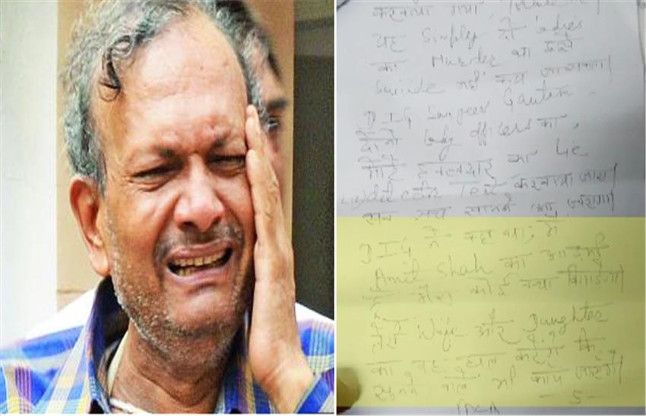 करवाया गया,
यह Simply दो ladies
का Murder था इसे
Suicide नहीं कहा जाएगा।
D.I.G Sanjeev Gautam
दोनो lady officers का,
मोटे हवलदार का lie
detector Test करवाया जाये।
सब सच सामने आ जाएगा।
D.I.G ने कहा था; मैं
Amit Shah का आदमी
हूँ मेरा कोई क्या बिगाड़ेगा।
तेरी Wife और Daughter
का वह हाल करेंगे कि
सुनने वाले भी कांप जाएंगे।
- 5 -